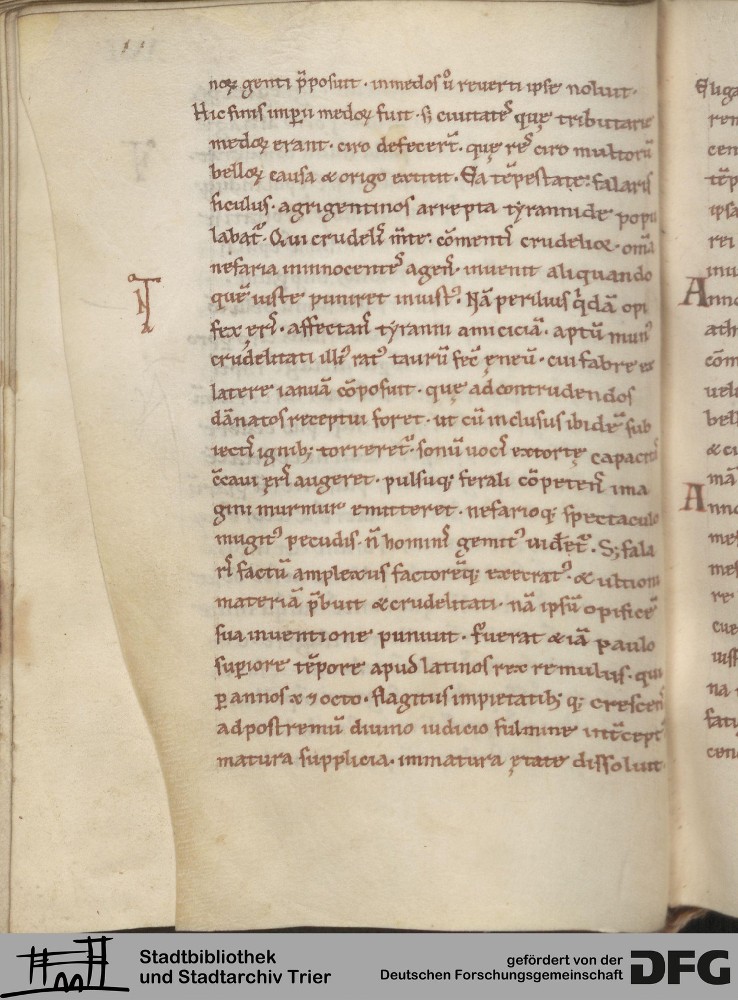 noꝝ genti p̄posuit · in medos ů reuerti ipse noluit ·
Hic finis imperii medoꝝ fuit · s; ciuitateſ̄ quę tributarię
medoꝝ erant · ciro defecer̄t · quę reſ̄ ciro multorū
belloꝝ causa & origo extitit · Ea tēpestate: falaris
siculus · agrigentinos arrepta tẏrannide popu
labat᷑ · Qui crudeliſ̄ m̄te: cōmentiſ̄ crudelior · om̄a
nefaria in innocenteſ̄ agenſ̄ · inuenit aliquando
quē iuste puniret iniustꝰ · Nā perilius q̇dā opi
fex ęriſ̄ · affectanſ̄ tẏranni amiciciā · aptū munꝰ
crudelitati illiꝰ ratꝰ taurū fec̄ ęneū · cui fabre ex
latere ianuā cōposuit · quę ad contrudendos
dānatos receptui foret · ut cū inclusus ibidē sub
iectiſ̄ ignib; torreret᷑ · sonū uociſ̄ extortę capacitaſ̄
c̄caui ęriſ̄ augeret · pulsuq; ferali cōpetenſ̄ ima
gini murmur emitteret · nefarioq; spectaculo
mugitꝰ pecudis · n̄ hominiſ̄ gemitꝰ uidēt᷑ · S; fala
riſ̄ factū amplexus factorēq; execratꝰ · & ultioni
materiā p̄buit & crudelitati · nā ipsū opificē
sua inuentione puniuit · Fuerat & iā paulo
superiore tēpore apud latinos rex remulus · qui
ꝑ annos x ⁊ octo · flagitiis impietatib; q; crescenſ̄
ad postremū diuino iudicio fulmine int̄ceptꝰ
matura supplicia · immatura ętate dissoluit ·
N
Anno
Anno
Stadtbibliothek
und Stadtarchiv Trier
gefördert von der
Deutschen Forschungsgemeinschaft
DFG